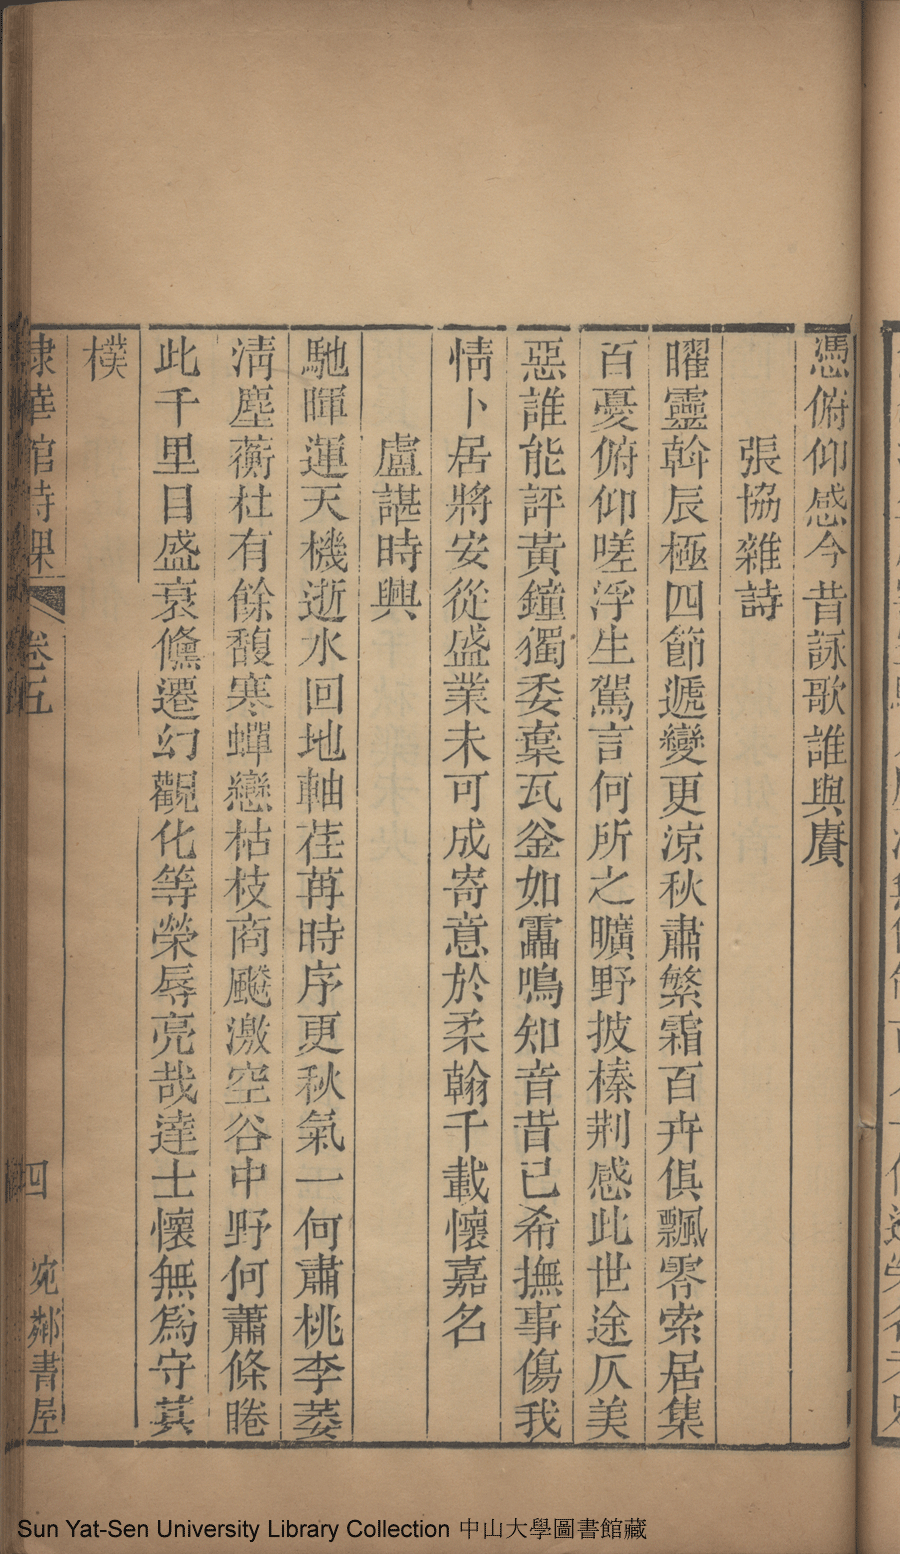 憑俯仰感今昔詠歌誰與賡
張協雜詩
曜靈斡辰極四節遞變更涼秋肅繁霜百卉俱飄零索居集
百憂俯仰嗟浮生駕言何所之曠野披榛荆感此世途仄美
惡誰能評黃鐘獨委棄瓦釜如靁鳴知音昔已希撫事傷我
情卜居將安從盛業未可成寄意於柔翰千載懷嘉名
盧諶時興
馳暉運天機逝水回地軸荏苒時序更秋氣一何肅桃李萎
淸塵蘅杜有餘馥寒蟬戀枯枝商飈激空谷中野何蕭條睠
此千里目盛衰儵遷幻觀化等榮辱亮哉達士懷無爲守其
樸
棣華館詩課
卷五
四
宛鄰書屋
Sun Yat-Sen University Library Collection 中山大學圖書館藏